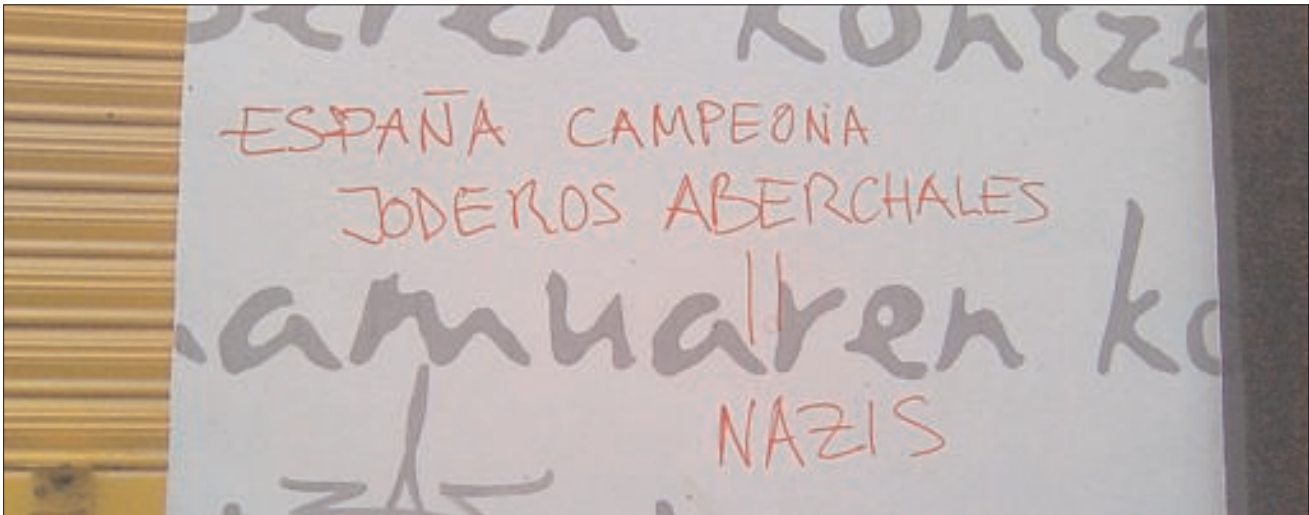 eren kontze
ESPAÑA CAMPEONA
JODEROS ABERCHALES
||
amuaren ko
NAZIS